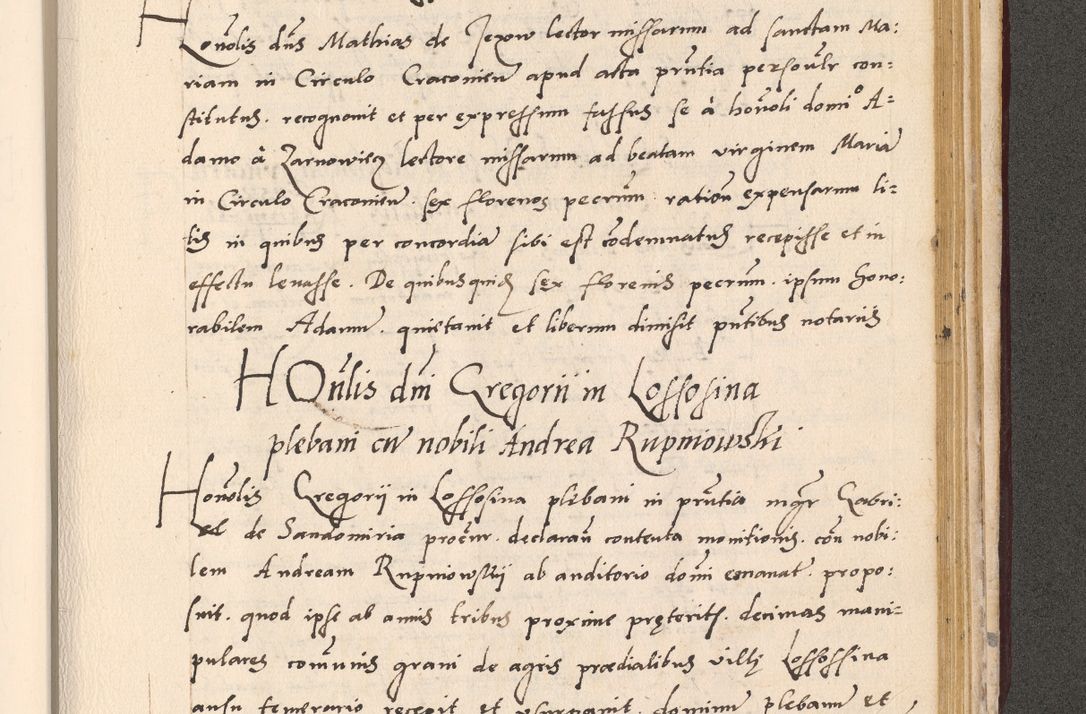 Honolis dns Mathias de Jexow lector missarum ad sanctam Ma:
riam in Circulo Craconiens apud acta pruntia personlr con:
stitutus. recognouit et per expressum fassus se à honoli domio A:
damo à Zarnowiecz lectore missarum ad beatam virginem Maria
in Circulo Craconiens. sex florenos pecrum. ration expensarum li:
tis in quibus per concordia sibi est codemnatus recepisse et in
effectu leuasse. De quibusquid sex florenis pecrum. ipsum Hono:
rabilem Adamu. quietauit et liberum dimisit pntibus notariis
HOnlis dni Gregorii in Lossosina
plebani cu nobili Andrea Rupniowski
Honolis Gregorij in Lossosina plebani in pruntia mgr Gabri:
el de Sandomiria procur. declaran contenta monitionis. con nobi:
lem Andream Rupniowskij ab auditorio domi emanat. propo:
suit. quod ipse ab annis tribus proxime pręterits. decimas mani:
pulares comunis grani de agris prædialibus villę Lossossina
ausu temerario recepit et usurpauit. dominum plebanu et